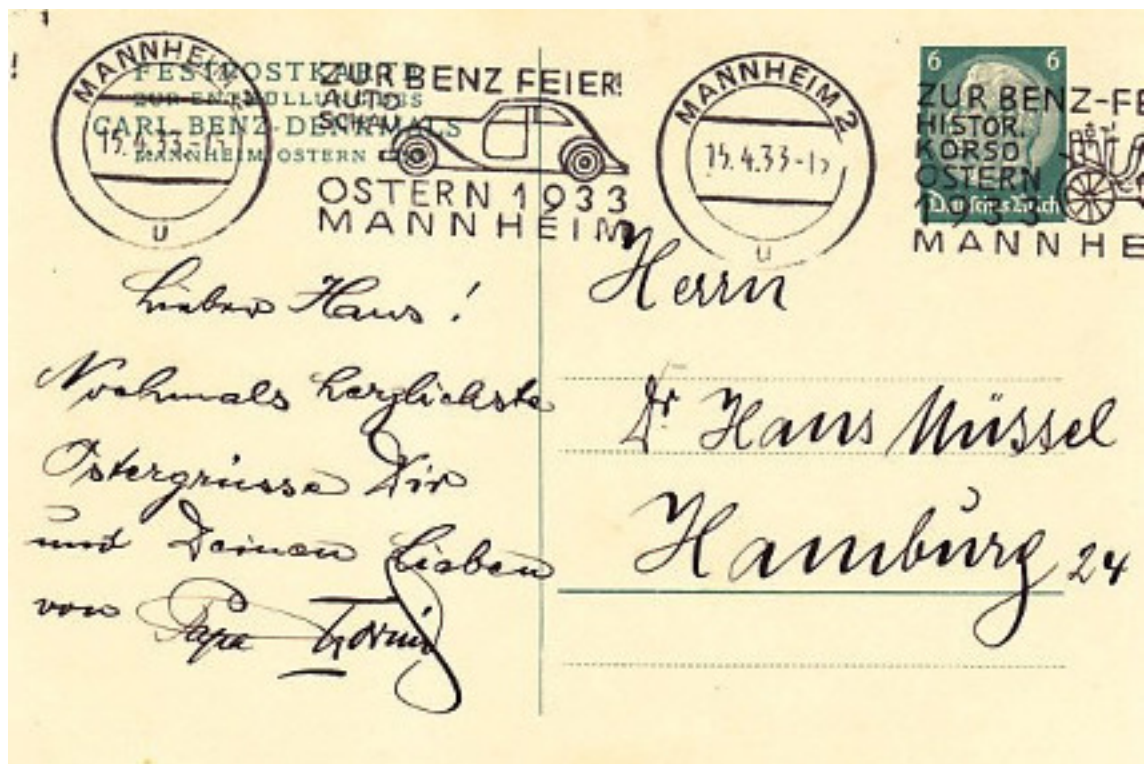 FESTPOSTKARTE
ZUR ENTHÜLLUNG DES
CARL-BENZ-DENKMALS
MANNHEIM OSTERN
MANNHEIM 2
15.4.33-15
u
ZUR BENZ FEIER!
AUTO
SCHAU
OSTERN 1933
MANNHEIM
MANNHEIM 2
15.4.33-15
u
6 6
Deutsches Reich
ZUR BENZ-FE
HISTOR.
KORSO
OSTERN
1933
MANNHE
Lieber Hans!
Nochmals herzlichste
Ostergrüsse Dir
und Deinen Lieben
von Papa
Herrn
Dr Hans Müssel
Hamburg 24